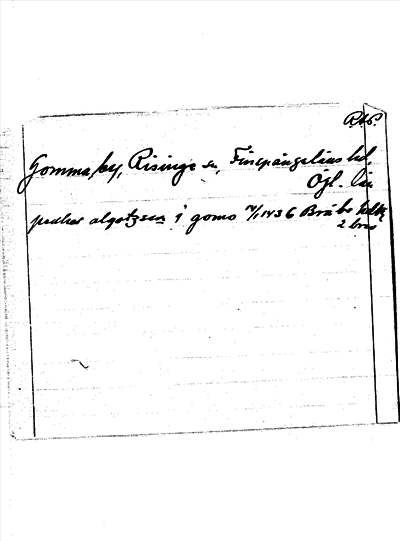 RAP.
Gomma, by, Risinge sn, Finspångaläns hd,
Ögl. län
pedher algotzsen i gomo 1436 Bråbo
2 brev